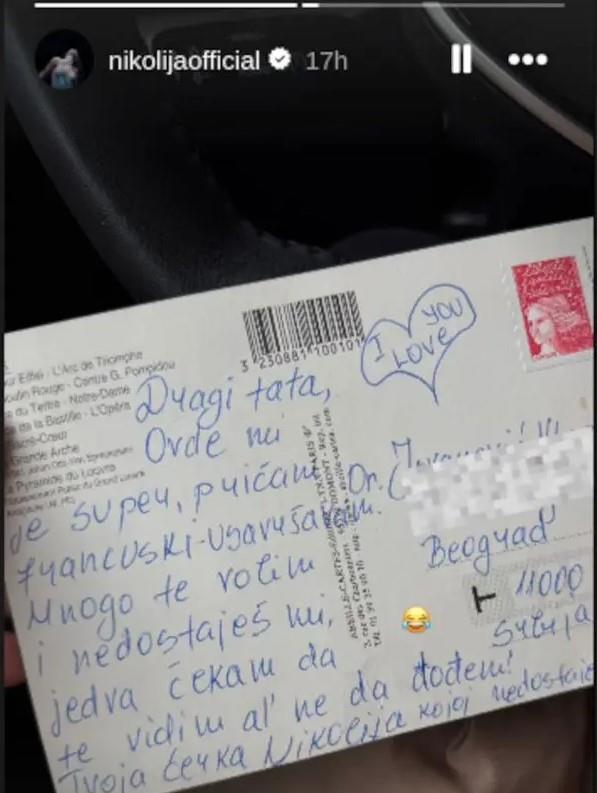 nikolijaofficial 17h
ur Eiffel - L'Arc de Triomphe
oulin Rouge - Centre G. Pompidou
e du Tertre - Notre-Dame
e de la Bastille - L'Opéra
Sacré-Cœur
Grande Arche
a Pyramide du Louvre
3 230881 100101
I LOVE YOU
Dragi tata,
Ovde mi
je super, pričam
francuski-usavršavam.
Mnogo te volim
i nedostaješ mi,
jedva čekam da
te vidim al' ne da dođem!
Tvoja ćerka Nikolija kojoj nedostaje
Dr.
Beograd
T 11000
Srbija